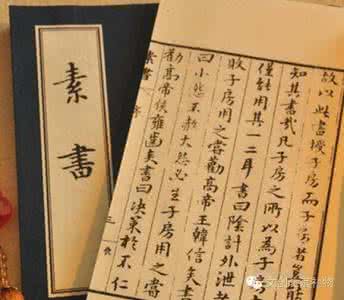 素書
故以此書授子房而子房者豈
知其書哉凡子房之所以為子
僅能用其一二耳書曰陰計外泄者
敗子房用之嘗勸高帝王韓信矣書
曰小怨不赦大怨必生子房用之嘗
勸高帝侯雍齒矣書曰決策於不仁
素書 序 三